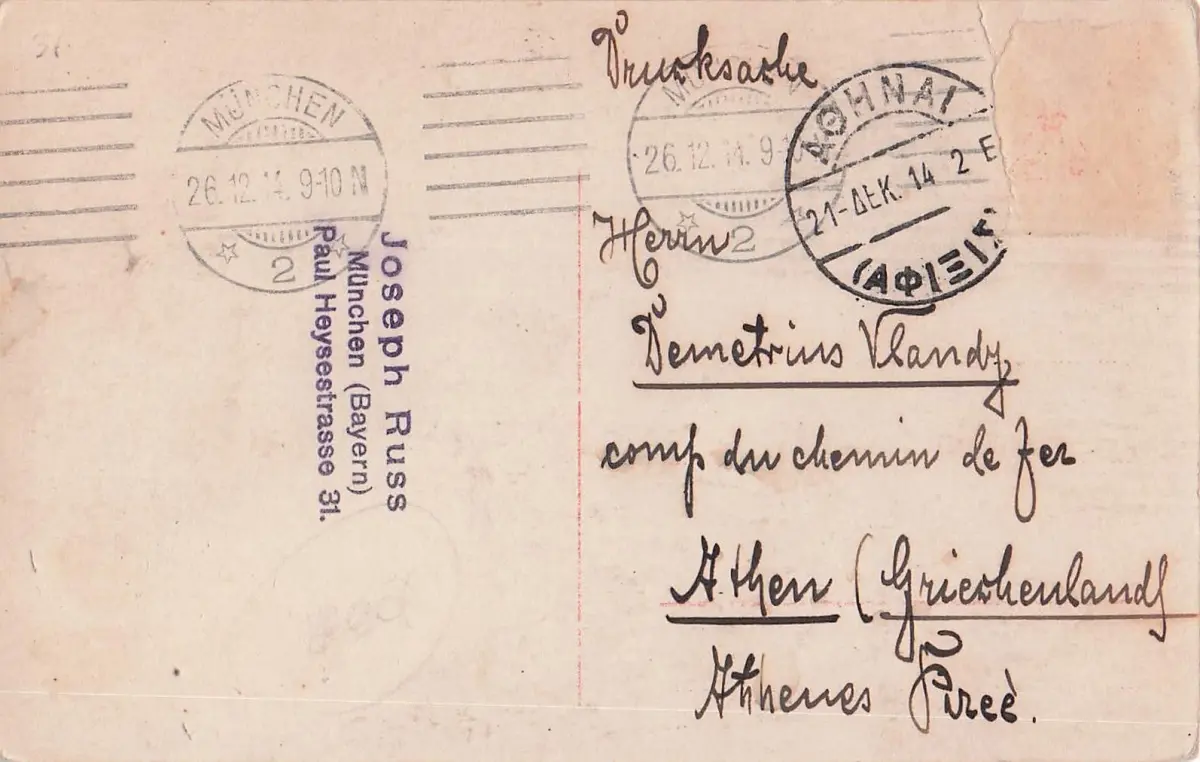 Drucksache
MÜNCHEN
26.12.14. 9-10 N
2
MÜNCHEN
26.12.14. 9-10
2
ΑΘΗΝΑΙ
21-ΔΕΚ. 14 2 Ε
(ΑΦΙΞΙΣ
Joseph Russ
München (Bayern)
Paul Heysestrasse 31.
Herrn
Demetrius Vlandy
comp du chemin de fer
Athen (Griechenland)
Athenes Pireè.